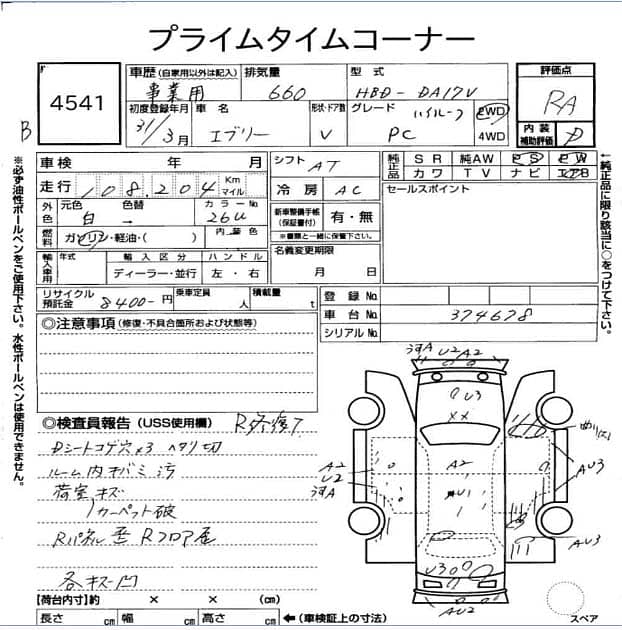 プライムタイムコーナー
4541
B
車歴 (自家用以外は記入) 排気量 型式 評価点
事業用 660 HBD-DA17V RA
初度登録年月 車名 形状・ドア数 グレード ハイルーフ 2WD 4WD
31/3月 エブリー V PC
内装補助評価 D
車検 年 月
走行 108,204 Km マイル
外色 元色 色替 カラーNo
白 → 26U
燃料 ガソリン・軽油・( ) 内装色
輸入車用 年式 輸入区分 ハンドル
ディーラー・並行 左・右
シフト AT
冷房 AC
新車整備手帳(保証書付) 有・無
※書類と一緒に保管下さい。
名義変更期限
月 日
純正品 SR 純AW PS PW
カワ TV ナビ エアB
セールスポイント
←純正品に限り該当に○をつけて下さい。
※必ず油性ボールペンをご使用下さい。水性ボールペンは使用できません。
リサイクル預託金 8400-円 乗車定員 人 積載量 t
登録No.
車台No. 374678
シリアルNo.
◎注意事項 (修復・不具合箇所および状態等)
◎検査員報告 (USS使用欄) R修復了
Dシートコゲ穴×3 ヘタリ切
ルーム内キバミ汚
荷室キズ
カーペット破
Rパネル歪 Rフロア
各キズ凹
U2 A2
U3
XX
A2
A2
U2
U1
AU3
AU3
U3
AU2
【荷台内寸】約 × × (cm)
長さ cm 幅 cm 高さ cm ←(車検証上の寸法)
スペア